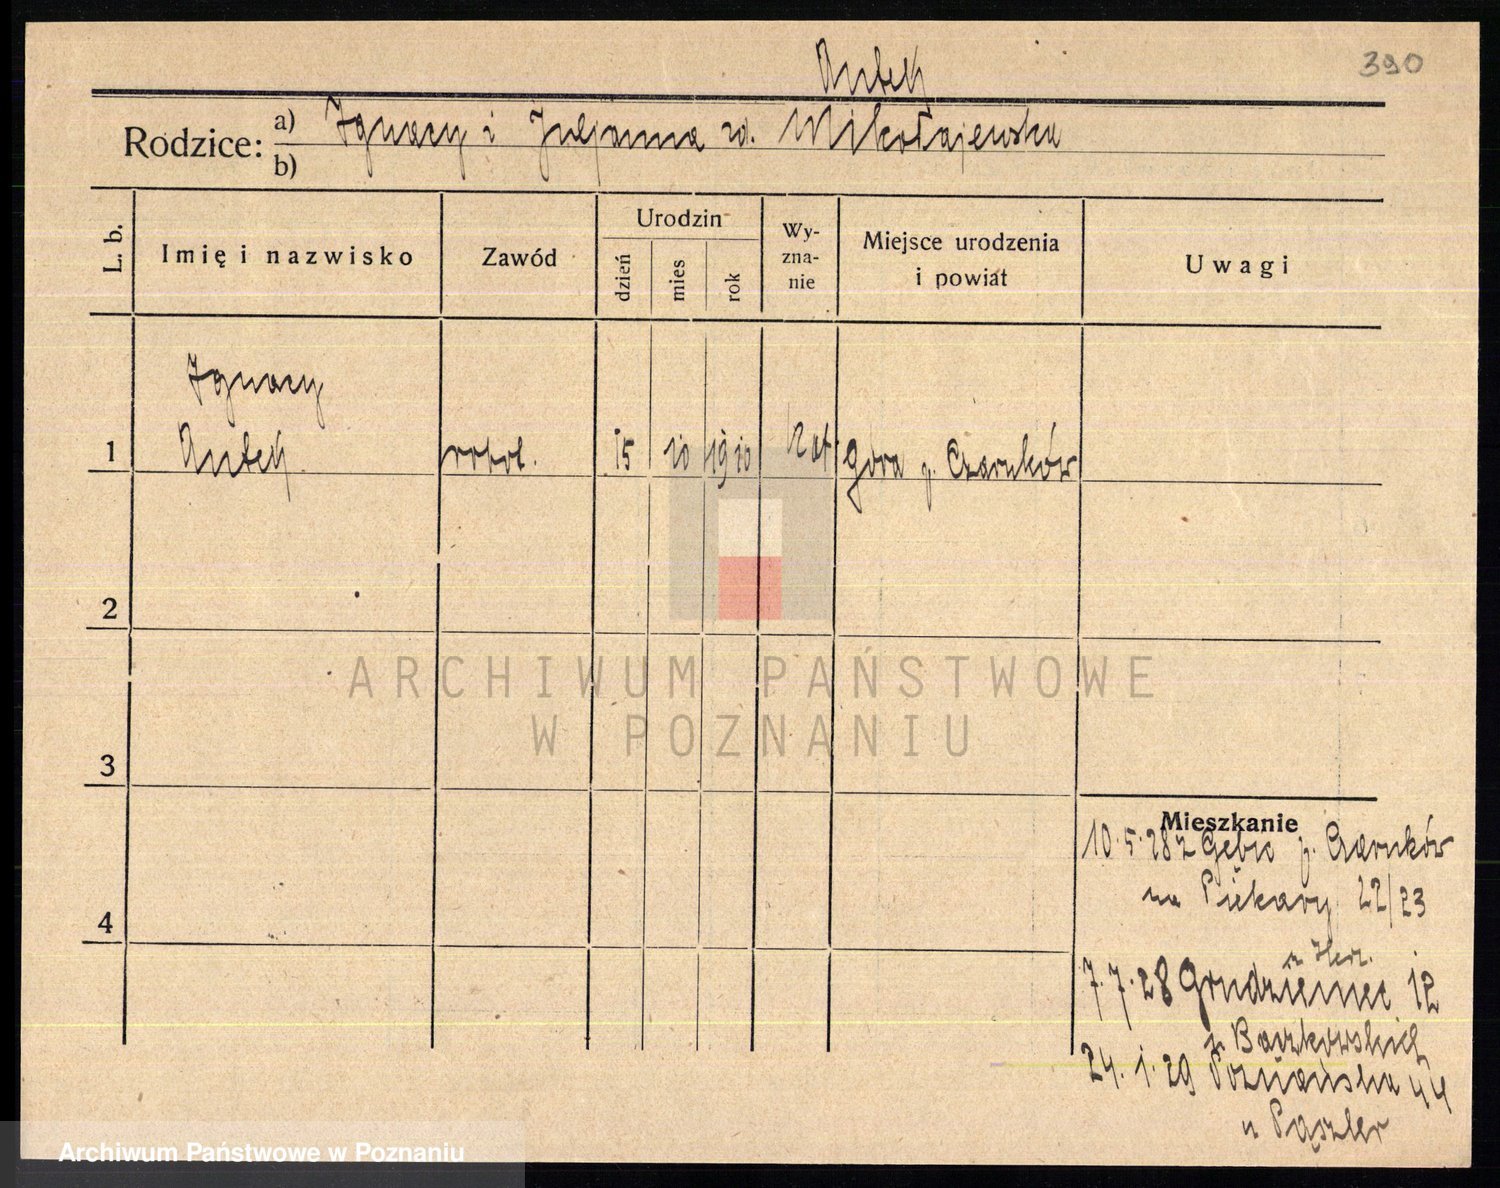 Antek
390
Rodzice: a) Ignacy i Juljanna zd. Mikołajewska
b)
L. b.
Imię i nazwisko
Zawód
Urodzin
dzień
mies
rok
Wy-
zna-
nie
Miejsce urodzenia
i powiat
Uwagi
Ignacy
1 Antek robot. 15 10 1910 kat Góra p. Czarnków
2
3
4
ARCHIWUM PAŃSTWOWE
W POZNANIU
Mieszkanie
10.5.28 z Gębic p. Czarnków
na Piekary 22/23
7.7.28 Grudzieniec 12
u Baczkowskich
24.1.29 Poznańska 44
u Paszler
Archiwum Państwowe w Poznaniu